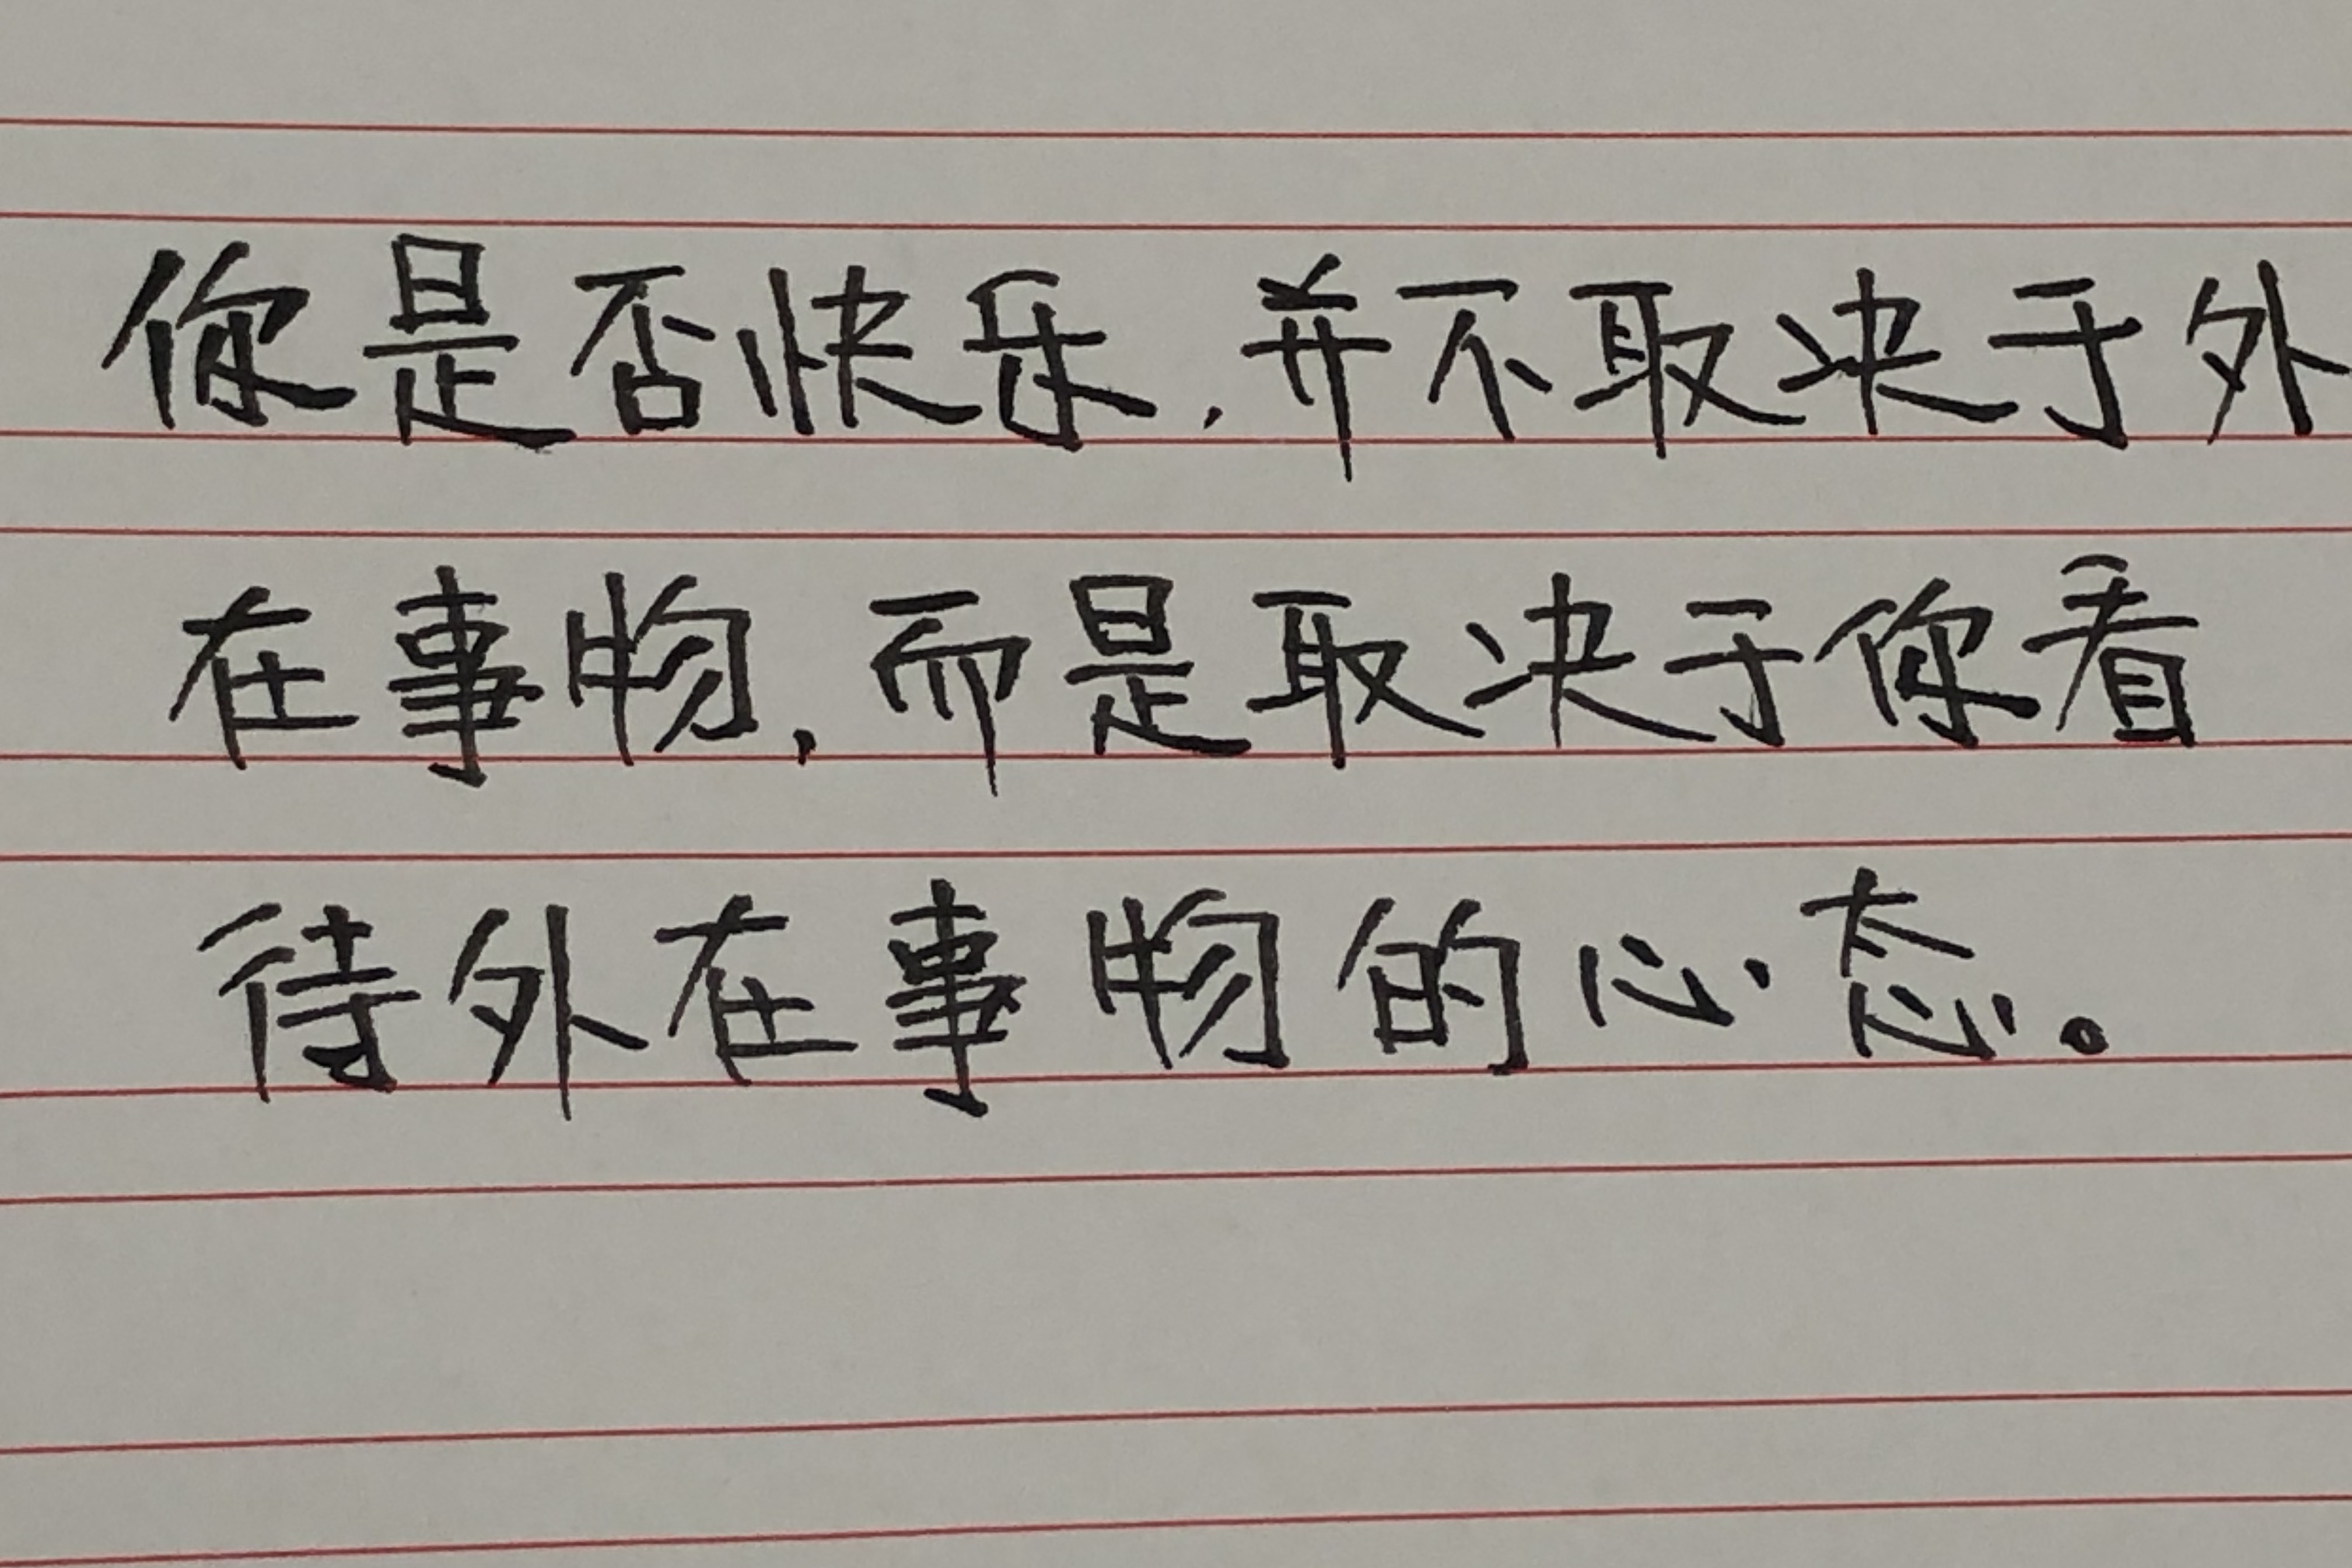 你是否快乐，并不取决于外
在事物，而是取决于你看
待外在事物的心态。